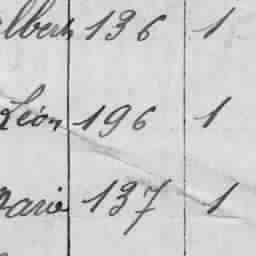 Albert 136 1
Léon 196 1
Marie 137 1